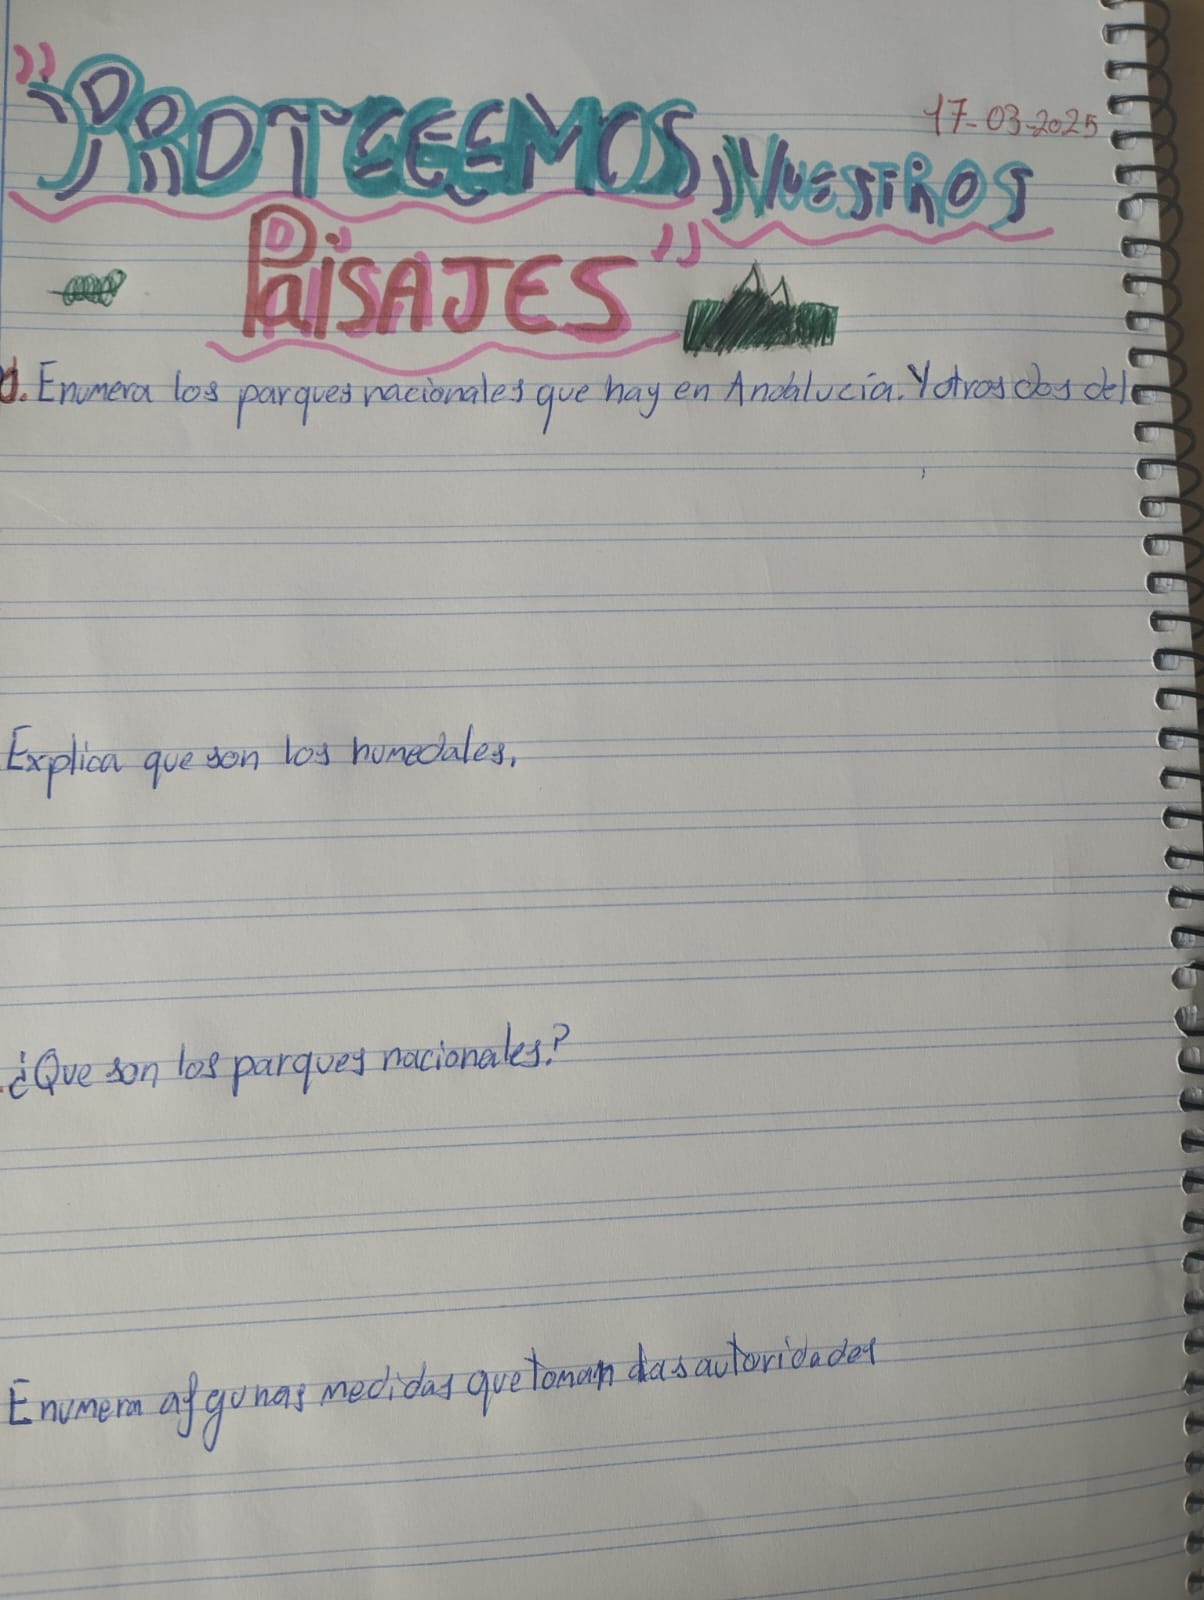 "PROTEGEMOS NUESTROS
17-03-2025
PAISAJES"
1. Enumera los parques nacionales que hay en Andalucía. Y otros dos del
Explica que son los humedales.
¿Que son los parques nacionales?
Enumera algunas medidas que toman las autoridades